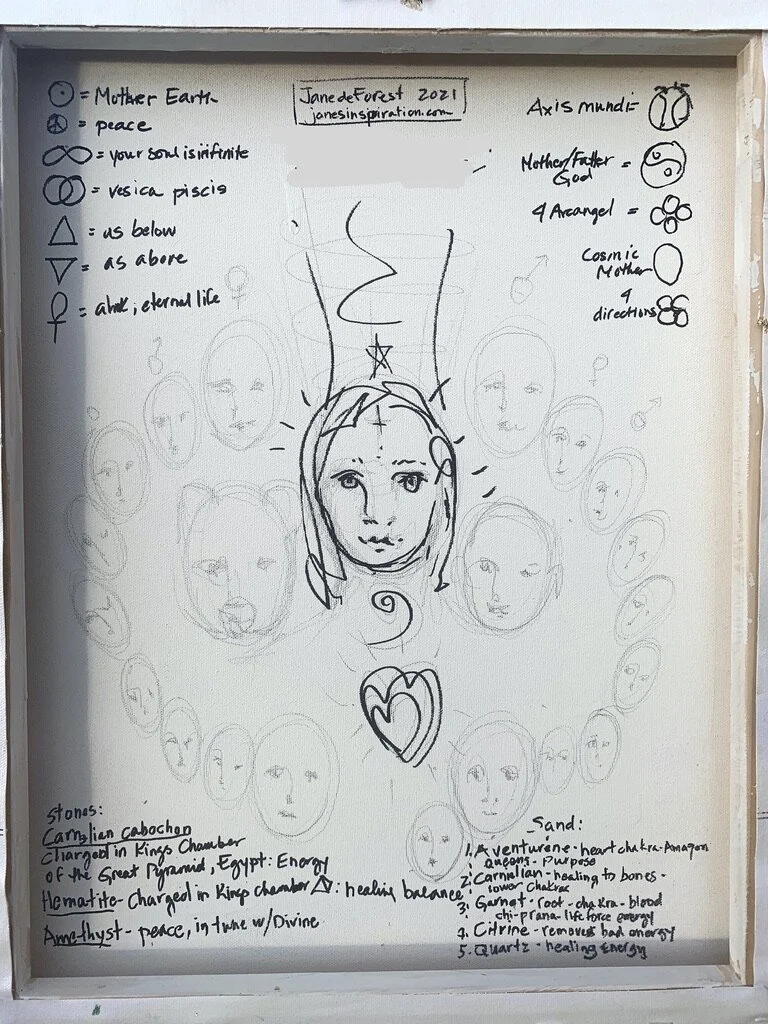 Jane deForest 2021
janesinspiration.com
= Mother Earth
= peace
= your soul is infinite
= vesica piscis
= as below
= as above
= ahk, eternal life
Axis mundi =
Mother/Father =
God
4 Arcangel =
Cosmic
Mother
4
directions
Stones:
Carnelian cabochon
Charged in Kings Chamber
of the Great Pyramid, Egypt: Energy
Hematite - Charged in Kings chamber : healing balance
Amethyst - peace, in tune w/Divine
Sand:
1. Aventurene - heart chakra - Amazon
queens - Purpose
2. Carnelian - healing to bones -
lower chakra
3. Garnet - root - chakra - blood
chi - prana - life force energy
4. Citrine - removes bad energy
5. Quartz - healing energy